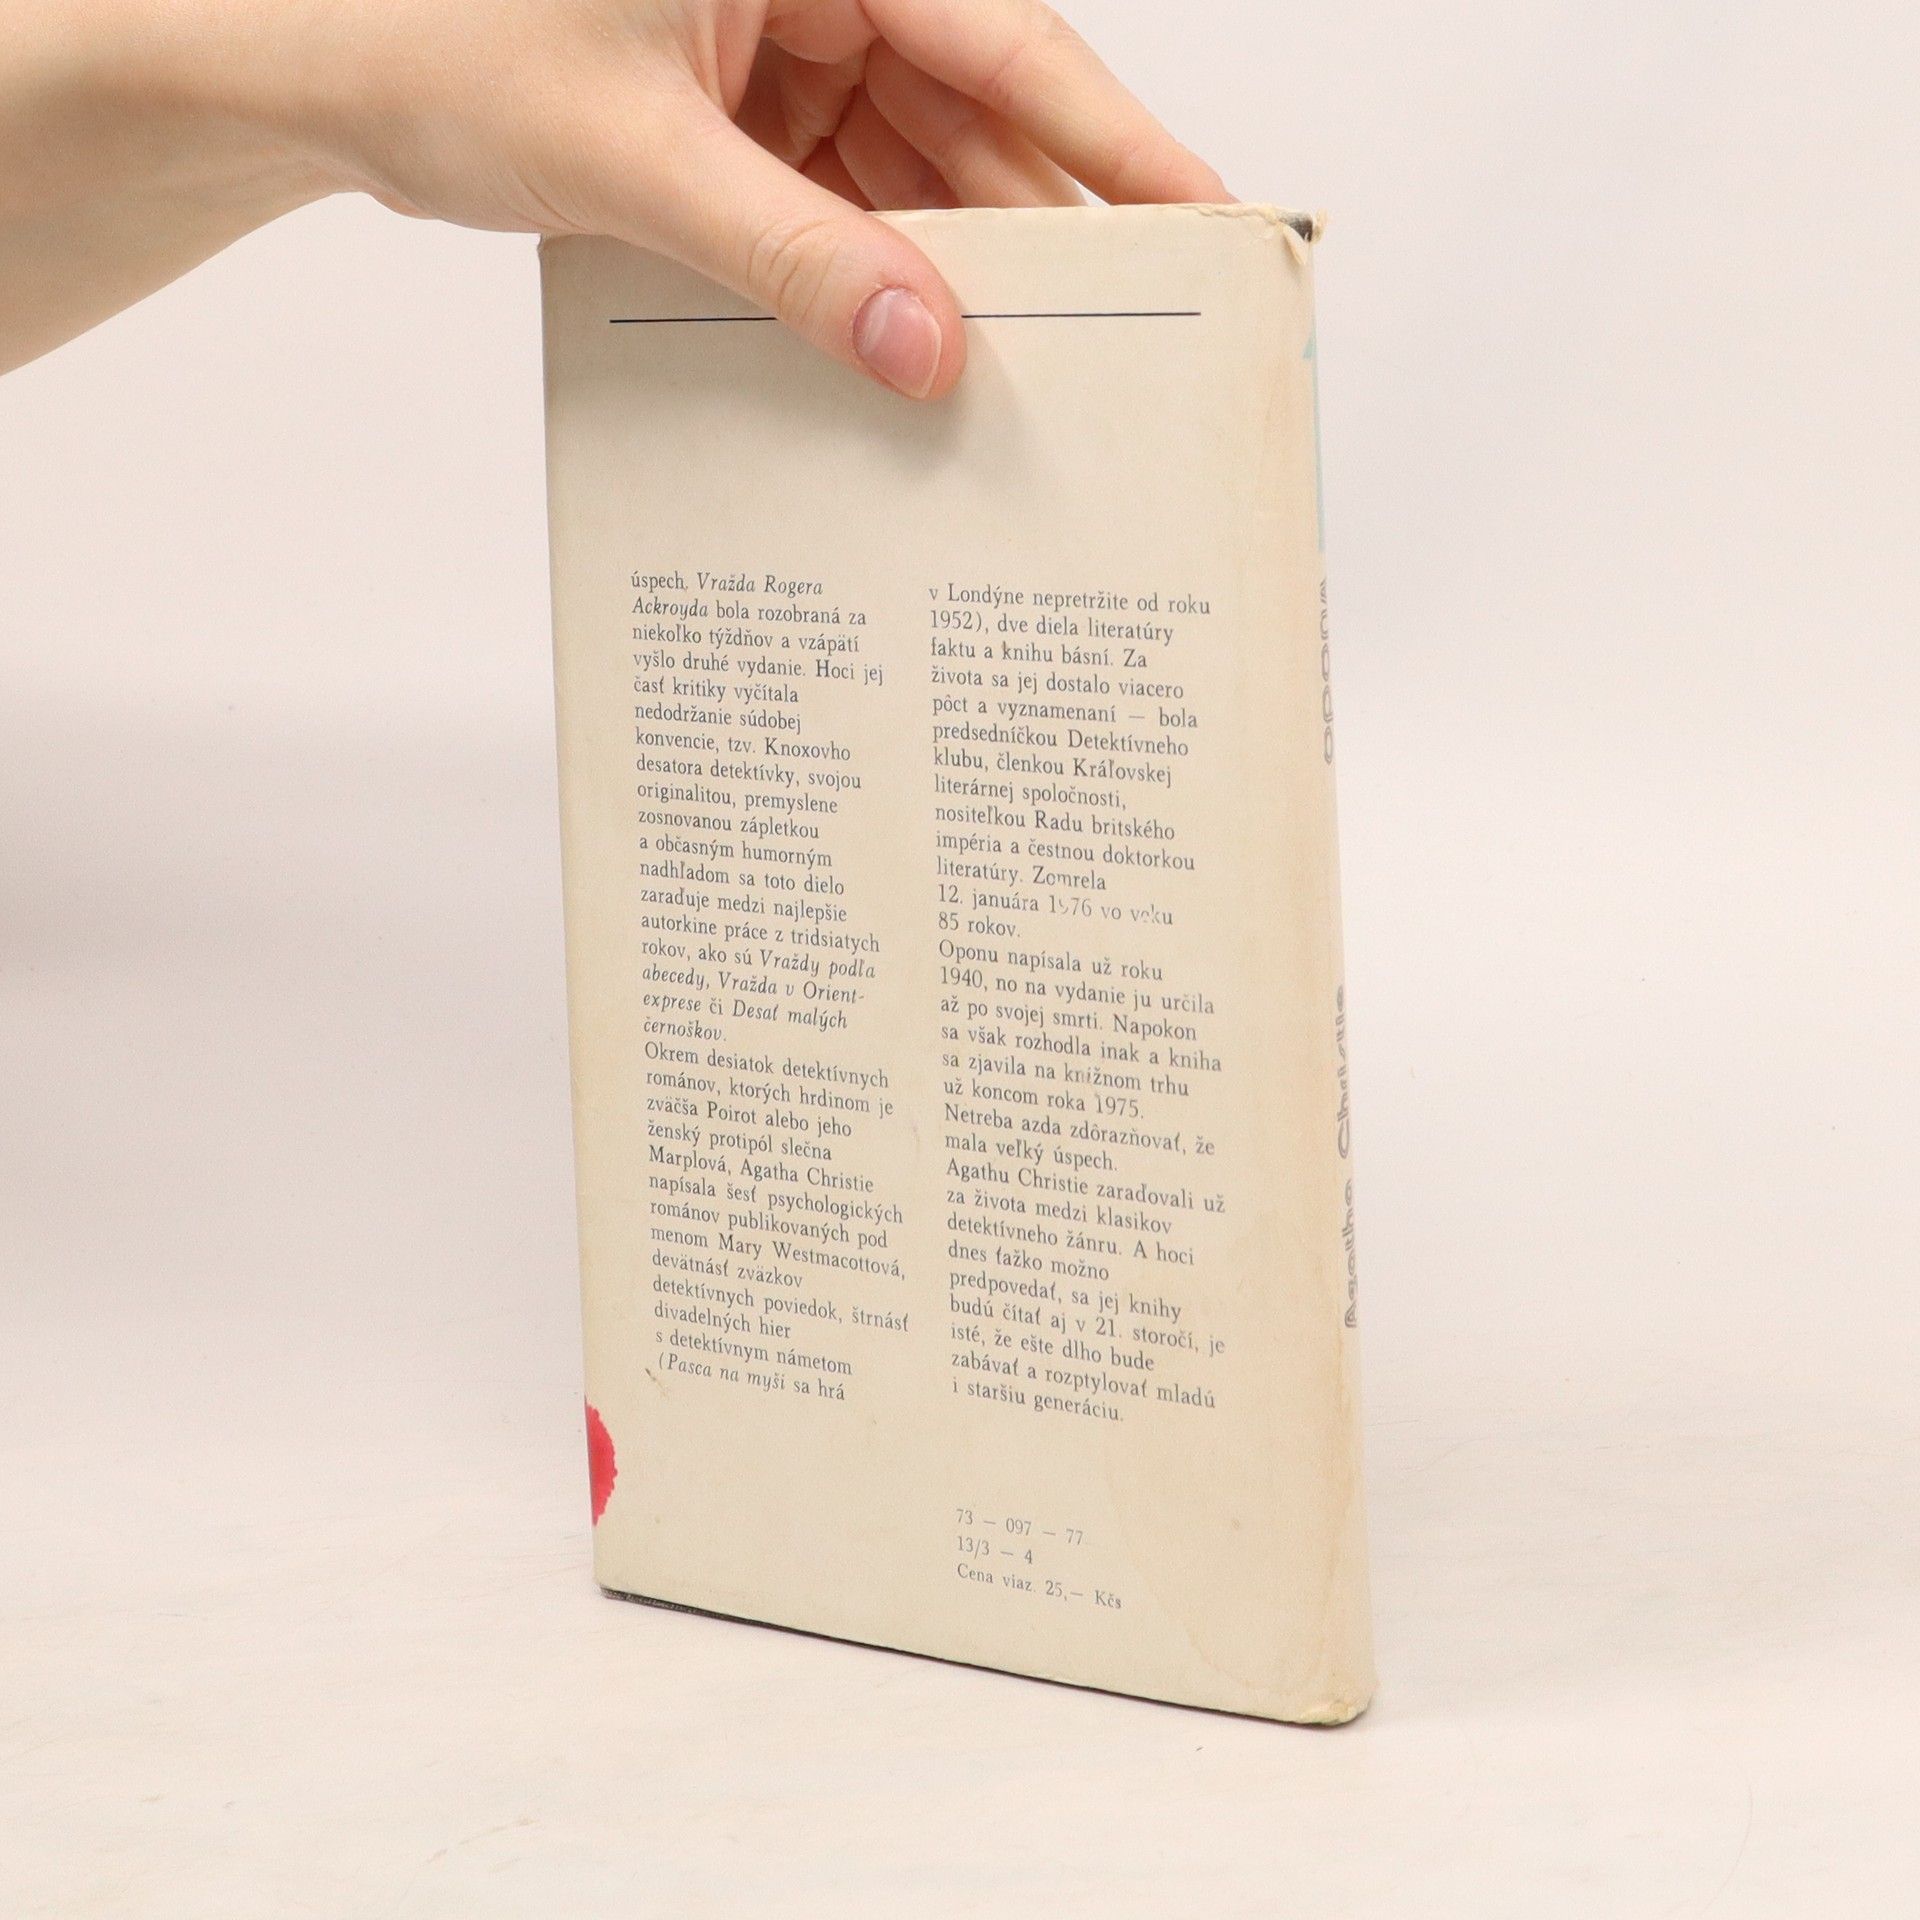 úspech. Vražda Rogera
Ackroyda bola rozobraná za
niekoľko týždňov a vzápätí
vyšlo druhé vydanie. Hoci jej
časť kritiky vyčítala
nedodržanie súdobej
konvencie, tzv. Knoxovho
desatora detektívky, svojou
originalitou, premyslene
zosnovanou zápletkou
a občasným humorným
nadhľadom sa toto dielo
zaraďuje medzi najlepšie
autorkine práce z tridsiatych
rokov, ako sú Vraždy podľa
abecedy, Vražda v Orient-
exprese či Desať malých
černoškov.
Okrem desiatok detektívnych
románov, ktorých hrdinom je
zväčša Poirot alebo jeho
ženský protipól slečna
Marplová, Agatha Christie
napísala šesť psychologických
románov publikovaných pod
menom Mary Westmacottová,
devätnásť zväzkov
detektívnych poviedok, štrnásť
divadelných hier
s detektívnym námetom
(Pasca na myši sa hrá
v Londýne nepretržite od roku
1952), dve diela literatúry
faktu a knihu básní. Za
života sa jej dostalo viacero
pôct a vyznamenaní — bola
predsedníčkou Detektívneho
klubu, členkou Kráľovskej
literárnej spoločnosti,
nositeľkou Radu britského
impéria a čestnou doktorkou
literatúry. Zomrela
12. januára 1976 vo veku
85 rokov.
Oponu napísala už roku
1940, no na vydanie ju určila
až po svojej smrti. Napokon
sa však rozhodla inak a kniha
sa zjavila na knižnom trhu
už koncom roka 1975.
Netreba azda zdôrazňovať, že
mala veľký úspech.
Agathu Christie zaraďovali už
za života medzi klasikov
detektívneho žánru. A hoci
dnes ťažko možno
predpovedať, sa jej knihy
budú čítať aj v 21. storočí, je
isté, že ešte dlho bude
zabávať a rozptylovať mladú
i staršiu generáciu.
73 — 097 — 77
13/3 — 4
Cena viaz. 25,— Kčs
Agatha Christie opona